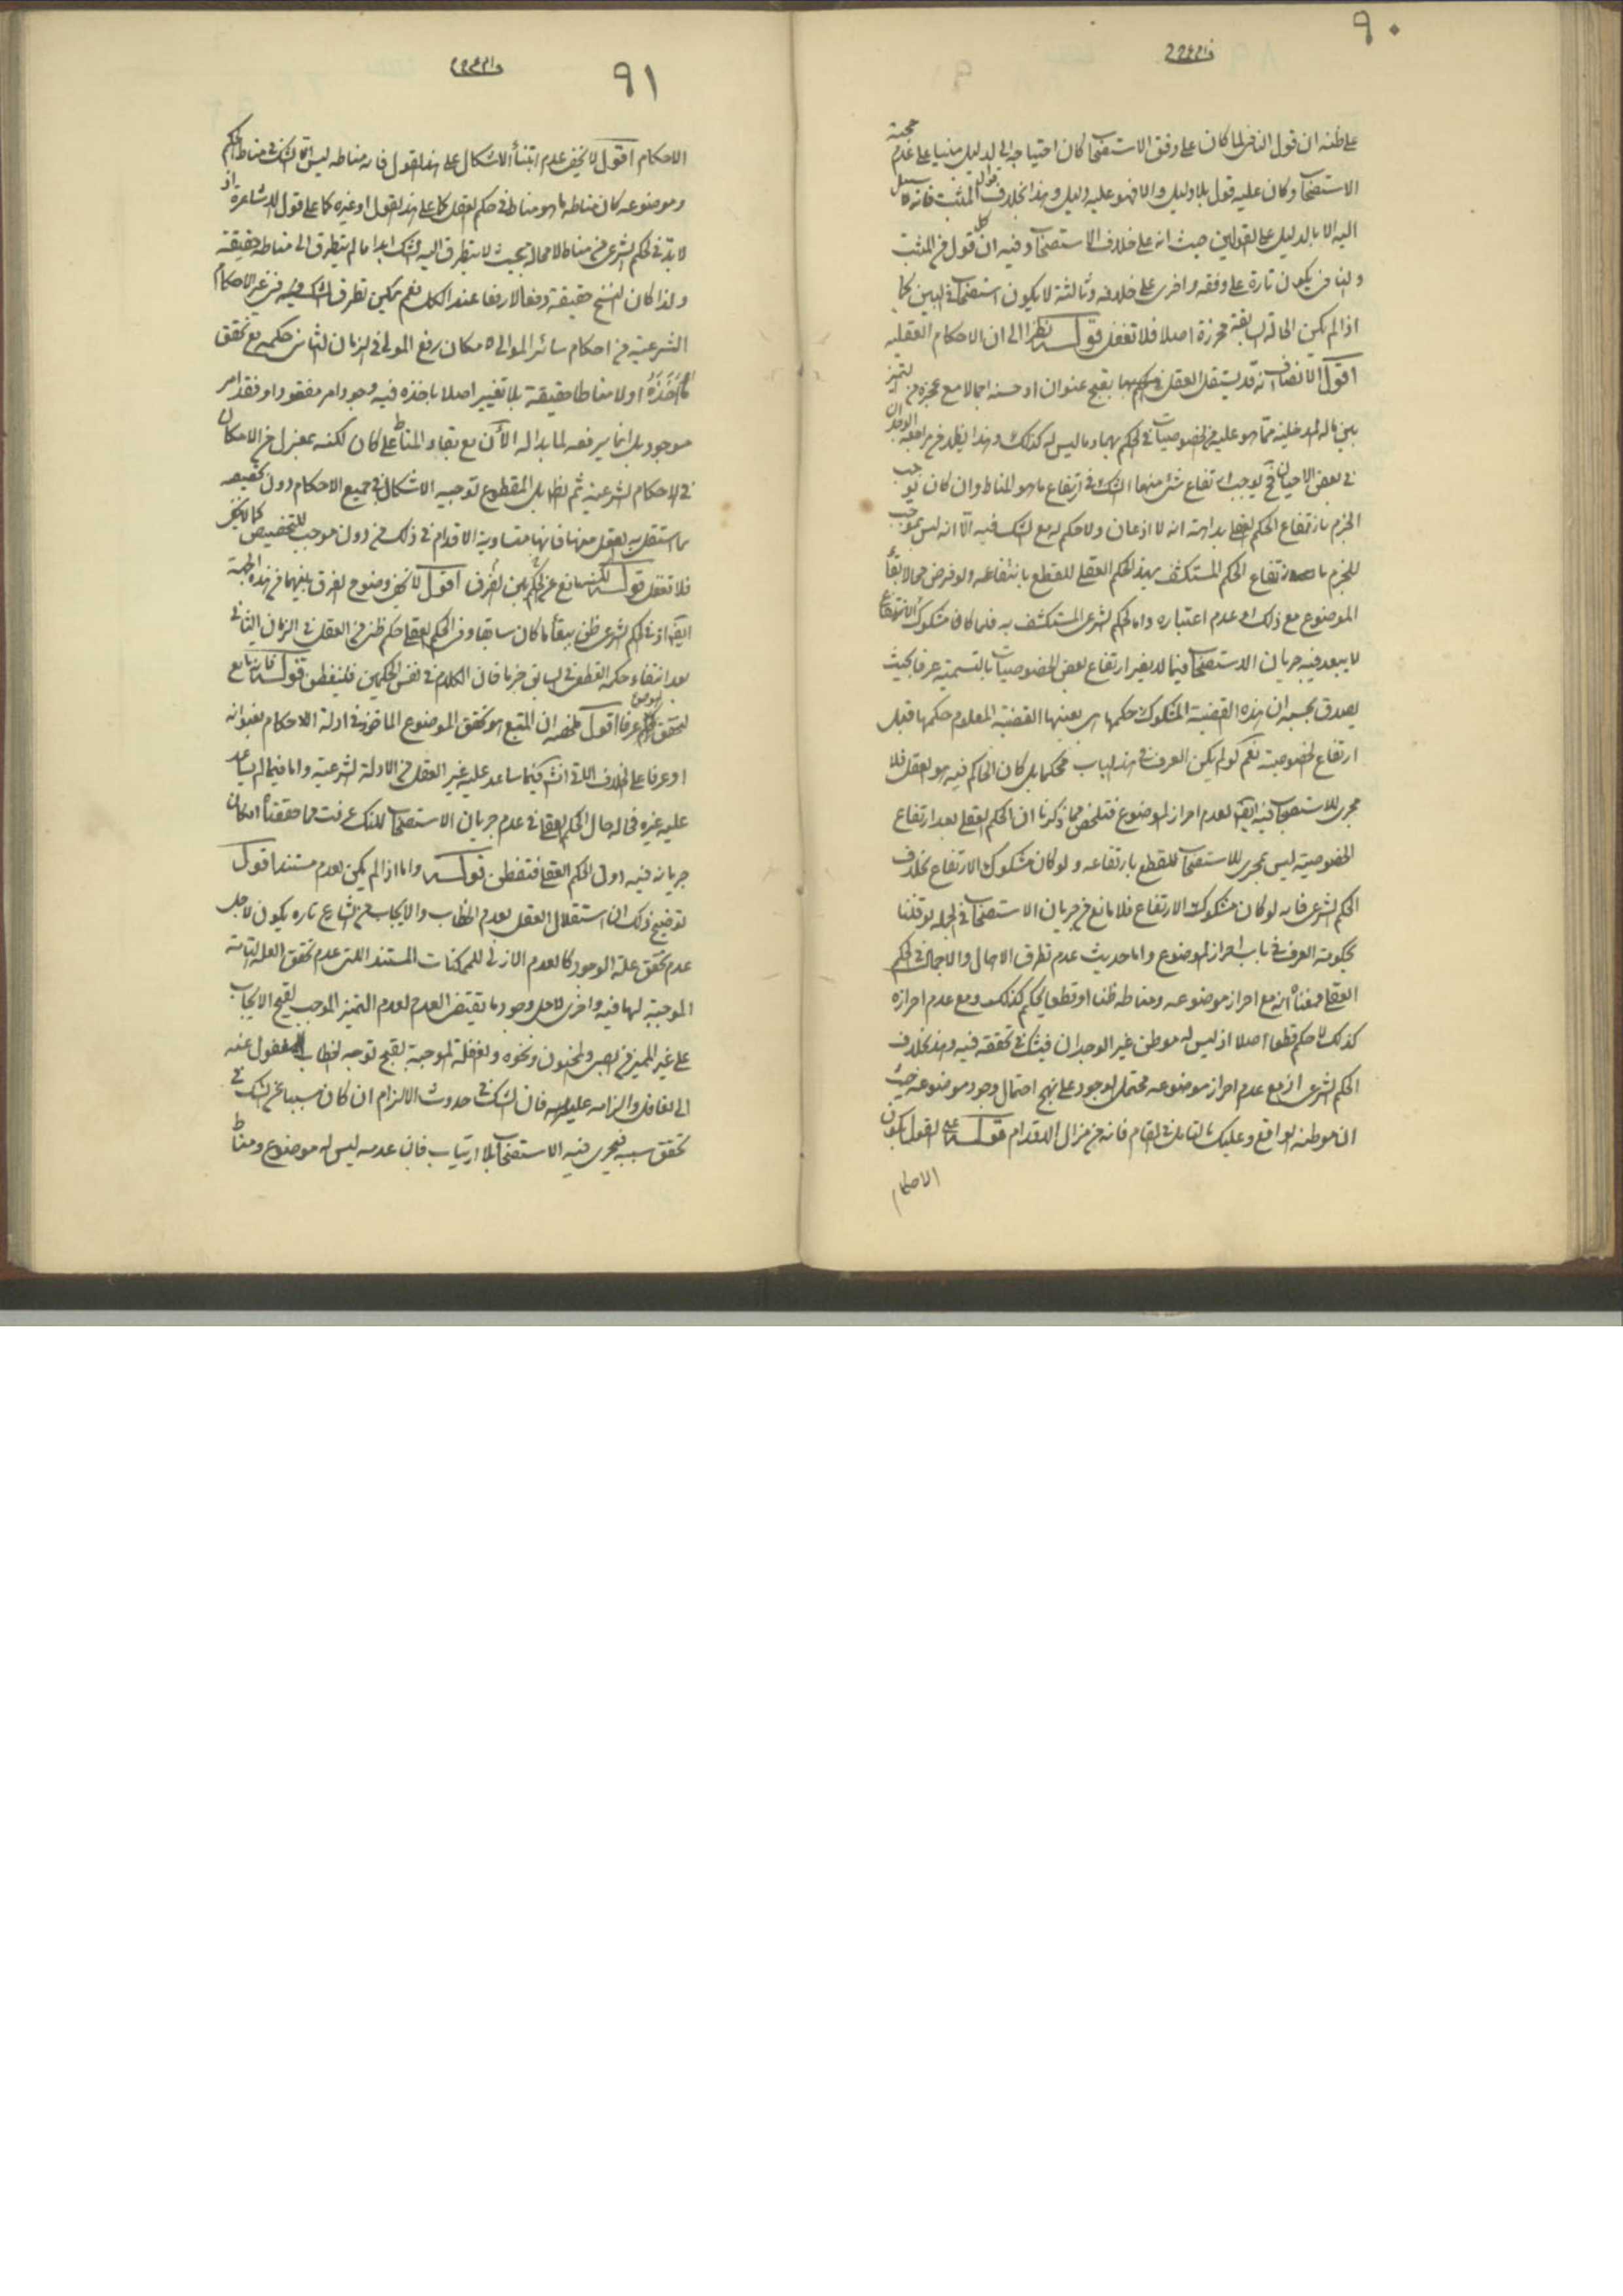 ٩٠
على ظنه ان قول النافى لما كان على وفق الاستصحاب كان احتياجه الى الدليل مبنيا على عدم حجية
الاستصحاب وكان عليه قول بلا دليل والا فهو عليه دليل وهذا بخلاف قول المثبت فانه لا سبيل
اليه الا بالدليل على القولين حيث انه على خلاف الاستصحاب وفيه ان كل قول من المثبت
والنافى يكون تارة على وفقه واخرى على خلافه وثالثة لا يكون استصحاب فى البين كما
اذا لم يكن الحالة السابقة محرزة اصلا فلا تغفل قوله نظرا الى ان الاحكام العقلية
اقول الانصاف انه قد يستقل العقل بقبح عنوان او حسنه اجمالا مع عجزه من التميز
بين ما له المدخلية مما هو عليه من الخصوصيات فى الحكم بهما وما ليس له كذلك وهذا يظهر من مراجعة الوجدان
فى بعض الاحيان فح يوجب ارتفاع شئ منها الشك فى ارتفاع ما هو المناط وان كان يوجب
الجزم بارتفاع الحكم العقلى بداهة انه لا اذعان ولا حكم له مع الشك فيه الا انه ليس بموجب
للجزم بارتفاع الحكم المستكشف بهذا الحكم العقلى للقطع بانتفاعه ولو فرض بقاء
الموضوع مع ذلك او عدم اعتباره واما الحكم الشرعى المستكشف به فلما كان مشكوك الارتفاع
لا يبعد فيه جريان الاستصحاب فيما لا يضر ارتفاع بعض الخصوصيات بالتسمية عرفا بحيث
يصدق بحسبه ان هذه القضية المشكوك حكمها هى بعينها القضية المعلوم حكمها قبل
ارتفاع الخصوصية نعم لو لم يكن العرف فى هذا الباب محكما بل كان الحاكم فيه هو العقل فلا
مجرى للاستصحاب فيه ايضا لعدم احراز الموضوع فتلخص مما ذكرنا ان الحكم العقلى بعد ارتفاع
الخصوصية ليس بمجرى للاستصحاب للقطع بارتفاعه ولو كان مشكوك الارتفاع بخلاف
الحكم الشرعى فانه لو كان مشكوك الارتفاع فلا مانع من جريان الاستصحاب فى الجملة لو قلنا
بحكومة العرف فى باب احراز الموضوع واما حديث عدم تطرق الاهمال والاجمال فى الحكم
العقلى فمعناه انه مع احراز موضوعه ومناطه ظنا او قطعا يحكم كذلك ومع عدم احرازه
كذلك لا حكم قطعا اصلا اذ ليس له موطن غير الوجدان فيشك فى تحققه فيه وهذا بخلاف
الحكم الشرعى اذ مع عدم احراز موضوعه محتمل الوجود على نهج احتمال وجود موضوعه حيث
ان موطنه الواقع وعليك بالتامل فى المقام فانه من مزال الاقدام قوله على القول بكون
الاحكام
٩١
الاحكام اقول لا يخفى عدم ابتناء الاشكال على هذا القول فانه مناطه ليس الا الشك فى مناط الحكم
وموضوعه كان مناطه ما هو مناط فى حكم العقل كما على هذا القول او غيره كما على قول الاشاعرة اذ
لا بد فى الحكم الشرعى من مناط لا محالة بحيث لا يتطرق اليه الشك ابدا ما لم يتطرق الى مناطه حقيقة
ولذا كان النسخ حقيقة دفعا لا رفعا عند الكل نعم يمكن تطرق الشك فيه فى غير الاحكام
الشرعية من احكام سائر الموالى لامكان رفع المولى فى الزمان الثانى حكمه مع تحقق
ما اخذه اولا مناطا حقيقة بلا تغيير اصلا باخذه فيه وجود امر مفقود او فقد امر
موجود بل انما يرفعه لما بدا له الآن مع بقاء المناط على كان لكنه بمعزل من الامكان
فى الاحكام الشرعية ثم الظاهر بل المقطوع توجيه الاشكال فى جميع الاحكام دون تخصيصه
بما استقل به العقل منها فانها متساوية الاقدام فى ذلك من دون موجب للتخصيص كما لا يخفى
فلا تغفل قوله لكنه مانع عن الحكم بين الفرق اقول لا يخفى وضوح الفرق بينهما من هذه الجهة
ايضا اذ فى الحكم الشرعى ظن ببقاء ما كان سابقا وفى الحكم العقلى حكم ظنى من العقل فى الزمان الثانى
بعد انتفاء حكمه القطعى فى السابق جزما فان الكلام فى نفس الحكمين فليتفطن قوله فانه تابع
لتحقق موضوعه عرفا اقول ملخصه ان المتبع هو تحقق الموضوع الماخوذ فى ادلة الاحكام بعنوانه
او عرفا على الخلاف الاتى انشاء فيما ساعد عليه غير العقل من الادلة الشرعية واما فيما لم يساعد
عليه غيره فحاله حال الحكم العقلى فى عدم جريان الاستصحاب لكنك عرفت مما حققناه امكان
جريانه فيه دون الحكم العقلى فتفطن قوله واما اذا لم يكن العدم مستندا اقول
توضيح ذلك ان استقلال العقل بعدم الخطاب والايجاب من الشارع تاره يكون لاجل
عدم تحقق علة الوجود كالعدم الازلى للممكنات المستند الى عدم تحقق العلة التامة
الموجبة لها فيه واخرى لاجل وجود ما يقتضى العدم لعدم التميز الموجب لقبح الايجاب
على غير المميز من الصبى والمجنون ونحوه والغفلة الموجبة لقبح توجه الخطاب المغفول عنه
الى الغافل والزامه عليه فان الشك فى حدوث الالزام ان كان مسببا عن الشك فى
تحقق سببه فيجرى فيه الاستصحاب بلا ارتياب فان عدمه ليس له موضوع ومناط